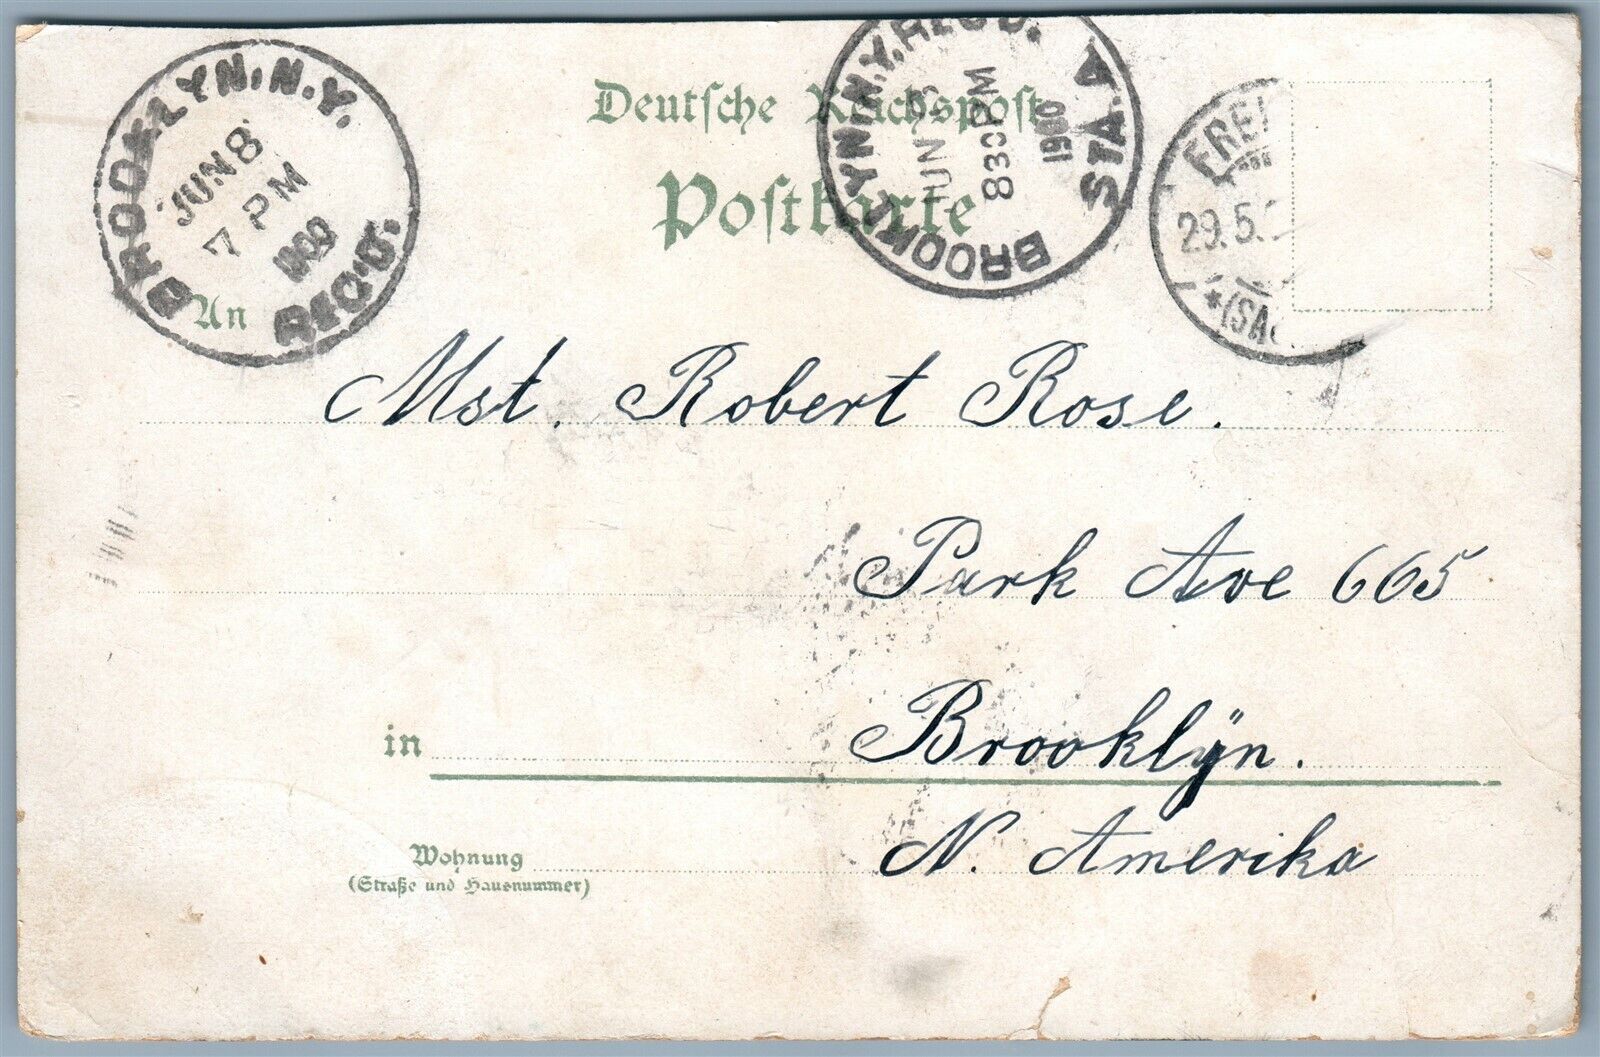 BROOKLYN, N.Y.
JUN 8
7 PM
1900
REC'D.
BROOKLYN, N.Y. REC'D.
JUN 8
830 PM
1900
STA. A
29.5.
Deutsche Reichspost
Postkarte
An
Mst. Robert Rose.
Park Ave 665
in Brooklÿn.
N. Amerika
Wohnung
(Straße und Hausnummer)